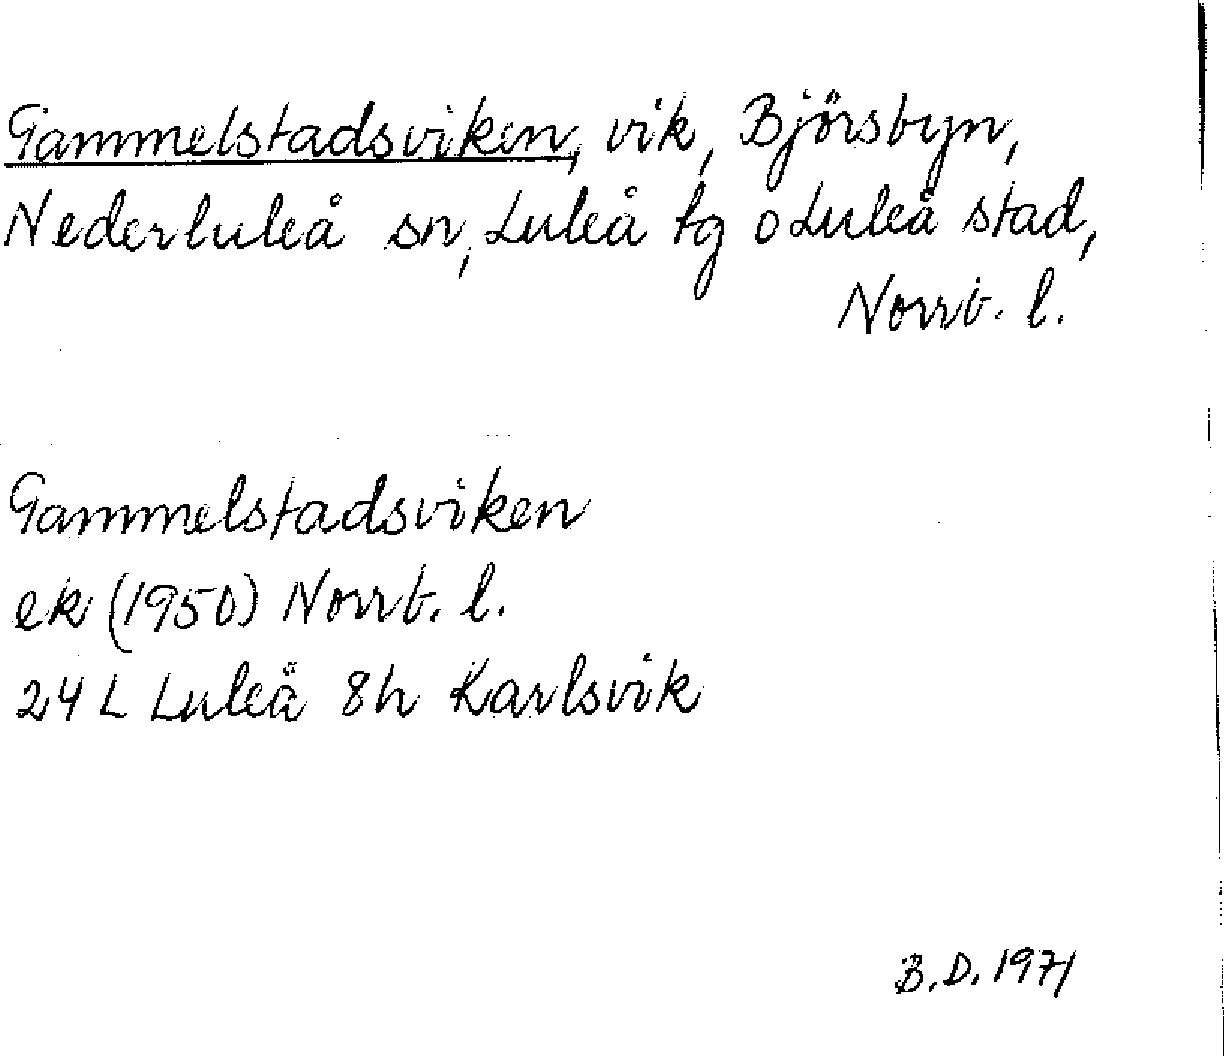 Gammelstadsviken, vik, Björsbyn,
Nederluleå sn, Luleå tg o Luleå stad,
Norrb. l.
Gammelstadsviken
ek (1950) Norrb. l.
24 L Luleå 8h Karlsvik
B.D. 1971